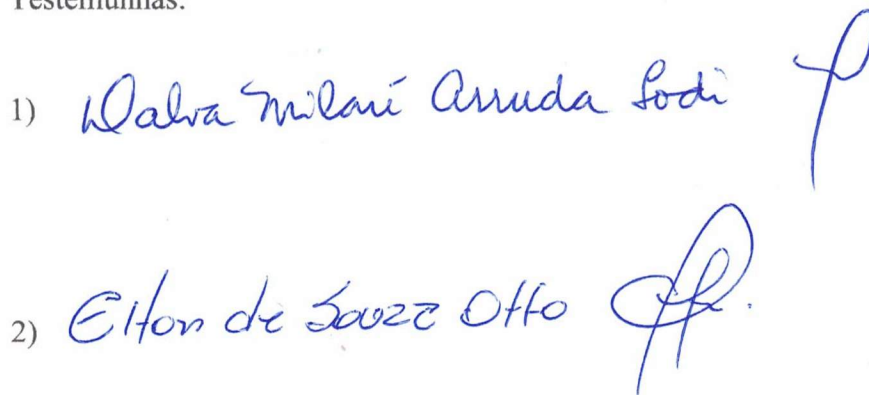 Testemunhas:
1) Dalva Milaré Arruda Sodi
2) Elton de Souza Otto